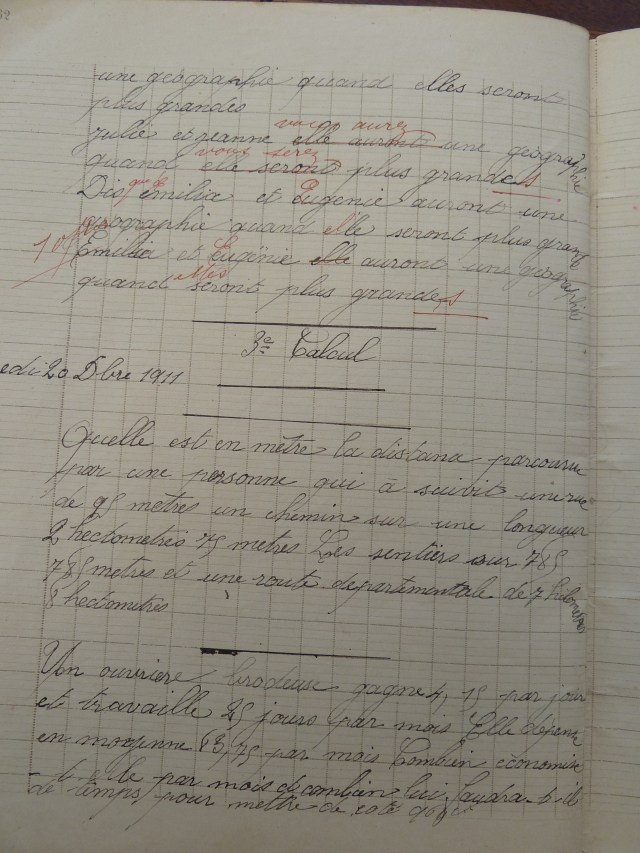 une géographie quand elles seront
plus grandes
Julie et jeanne elle auront une géographie
vous aurez
quand elle seront plus grandes
vous serez
Emilia et Eugenie auront une
géographie quand elle seront plus grant
Emilia et Eugènie elle auront une géographie
quand elles seront plus grandes
3e Calcul
edi 20 Dbre 1911
Quelle est en mètre la distance parcourue
par une personne qui à suivit une rue
de 95 mètres un chemin sur une longueur
2 hectometres 75 metres Les sentiers sur 785
785 metres et une route departementale de 7 kilometres
8 hectometres
Un ouvriere brodeuse gagne 4, 15 par jour
et travaille 25 jours par mois Elle dépense
en moyenne 83,75 par mois Combien économise
t elle par mois et combien lui faudra-t-il
de temps pour mettre de coté